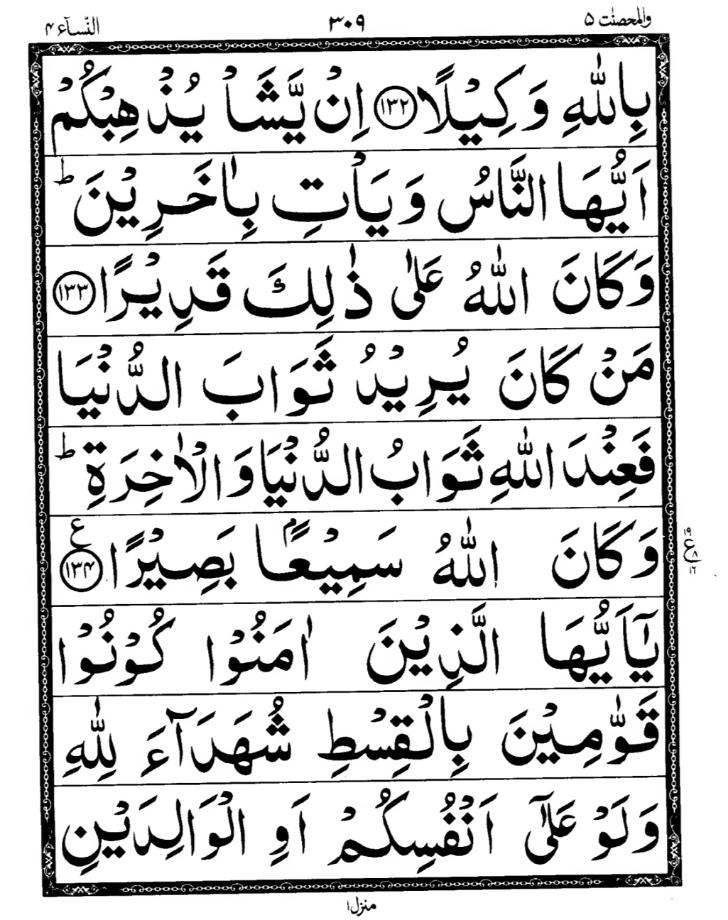 والمحصنٰت ۵ ۳۰۹ النّسآء ۴
بِاللّٰهِ وَكِيْلًا ﴿۱۳۲﴾ اِنْ يَّشَاْ يُذْهِبْكُمْ
اَيُّهَا النَّاسُ وَيَاْتِ بِاٰخَرِيْنَ ؕ
وَكَانَ اللّٰهُ عَلٰى ذٰلِكَ قَدِيْرًا ﴿۱۳۳﴾
مَنْ كَانَ يُرِيْدُ ثَوَابَ الدُّنْيَا
فَعِنْدَ اللّٰهِ ثَوَابُ الدُّنْيَا وَالْاٰخِرَةِ ؕ
وَكَانَ اللّٰهُ سَمِيْعًۢا بَصِيْرًا ﴿۱۳۴﴾ ع
۱۹ ع ۸ ۱۲
يٰۤاَيُّهَا الَّذِيْنَ اٰمَنُوْا كُوْنُوْا
قَوّٰمِيْنَ بِالْقِسْطِ شُهَدَآءَ لِلّٰهِ
وَلَوْ عَلٰۤى اَنْفُسِكُمْ اَوِ الْوَالِدَيْنِ
منزل ۱